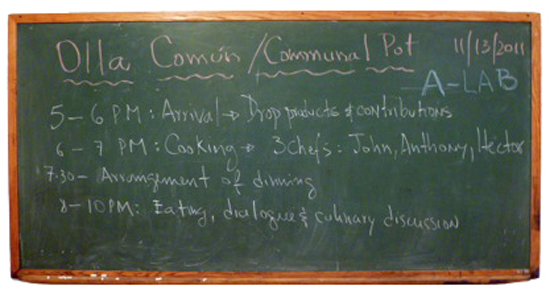 Olla Común/Communal Pot 11/13/2011
A-LAB
5-6 PM: Arrival → Drop products & contributions
6-7 PM: Cooking → 3 Chefs: John, Anthony, Héctor
7:30- Arrangement of dinning
8-10PM: Eating, dialogue & culinary discussion